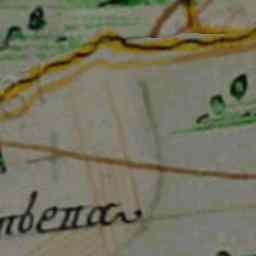 твепа